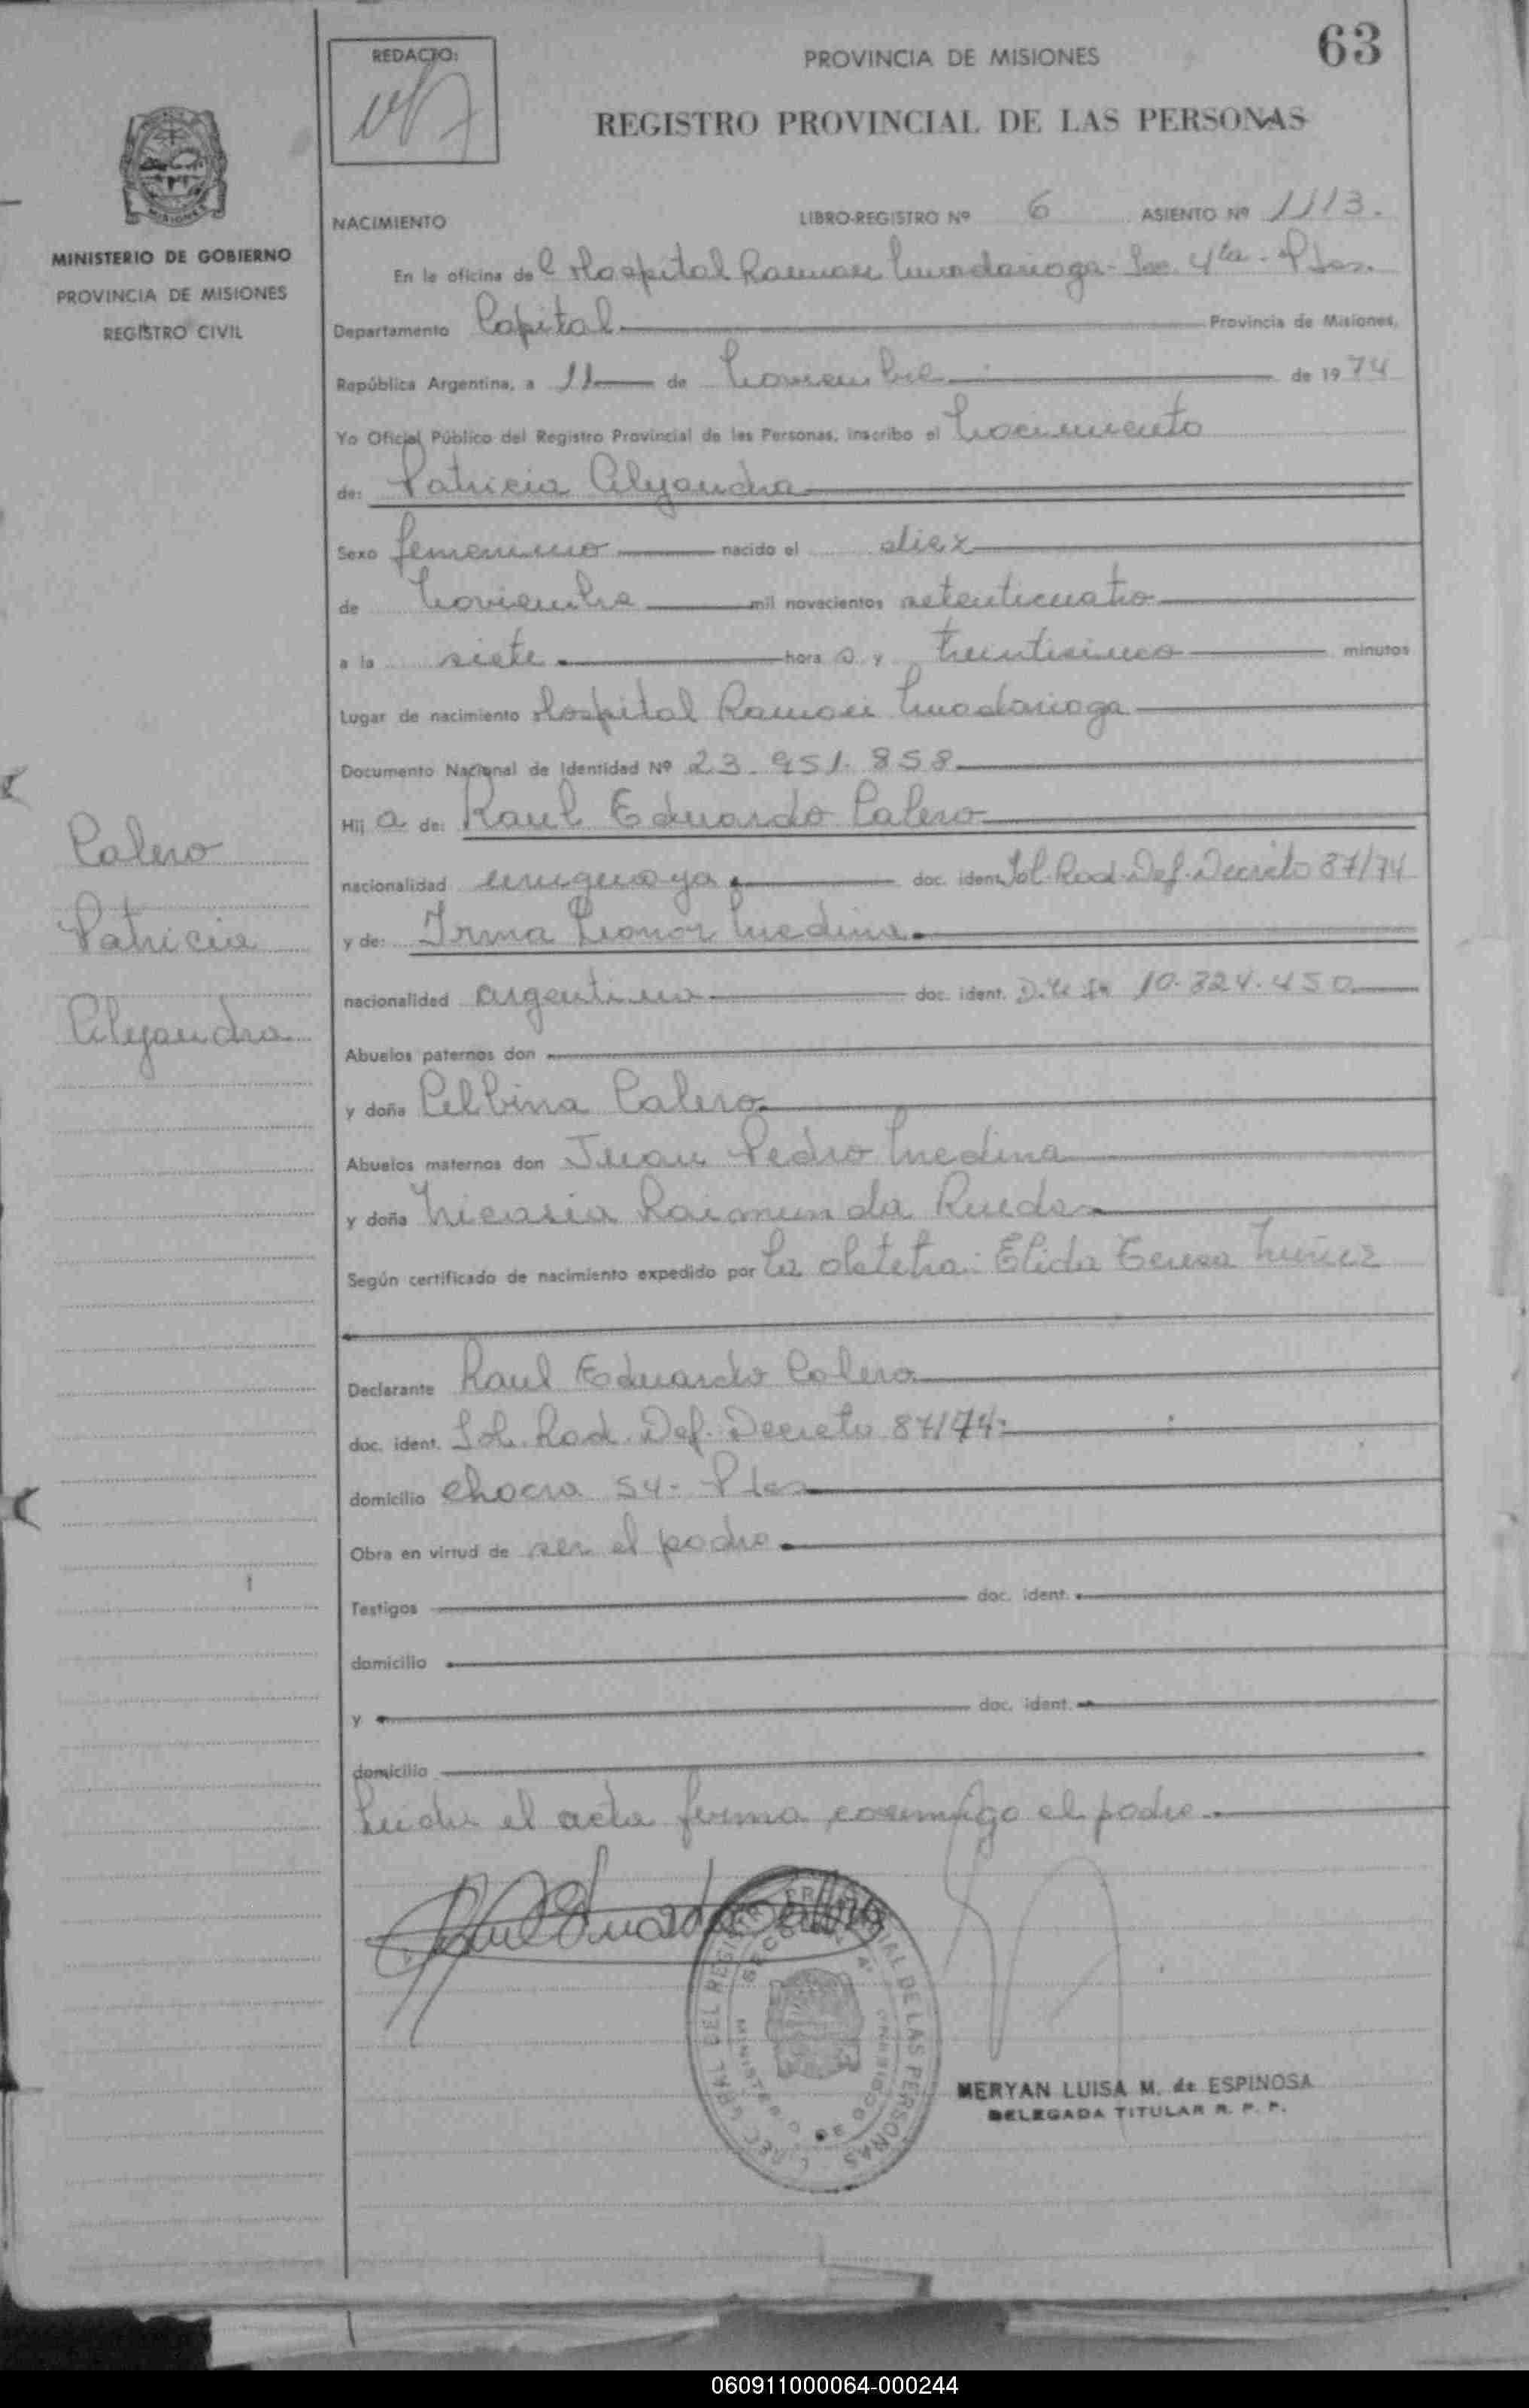 63
REDACTO:
PROVINCIA DE MISIONES
REGISTRO PROVINCIAL DE LAS PERSONAS
MISIONES
MINISTERIO DE GOBIERNO
PROVINCIA DE MISIONES
REGISTRO CIVIL
NACIMIENTO LIBRO-REGISTRO Nº 6 ASIENTO Nº 1113.
En la oficina del Hospital Ramon Madariaga - Sec. 4ta - Pdas.
Departamento Capital Provincia de Misiones,
República Argentina, a 11 de Noviembre de 1974
Yo Oficial Público del Registro Provincial de las Personas, inscribo el Nacimiento
de: Patricia Alejandra
Sexo femenino nacido el diez
de Noviembre mil novecientos setenticuatro
a la siete hora s y treinticinco minutos
Lugar de nacimiento Hospital Ramon Madariaga
Documento Nacional de Identidad Nº 23.951.858
Hij a de: Raul Eduardo Calero
nacionalidad uruguaya doc. ident. Sol. Rad. Def. Decreto 87/74
y de: Irma Leonor Medina
nacionalidad argentina doc. ident. 10.324.450
Abuelos paternos don
y doña Celbina Calero
Abuelos maternos don Juan Pedro Medina
y doña Nicasia Raimunda Rueda
Según certificado de nacimiento expedido por La obstetra: Elida Teresa Nuñez
Declarante Raul Eduardo Calero
doc. ident. Sol. Rad. Def. Decreto 87/74
domicilio chacra 54 - Pdas
Obra en virtud de ser el padre
Testigos doc. ident.
domicilio
y doc. ident.
domicilio
Leida el acta firma conmigo el padre
Calero
Patricia
Alejandra
Raul Eduardo Calero
MERYAN LUISA M. de ESPINOSA
DELEGADA TITULAR R. P. P.
060911000064-000244